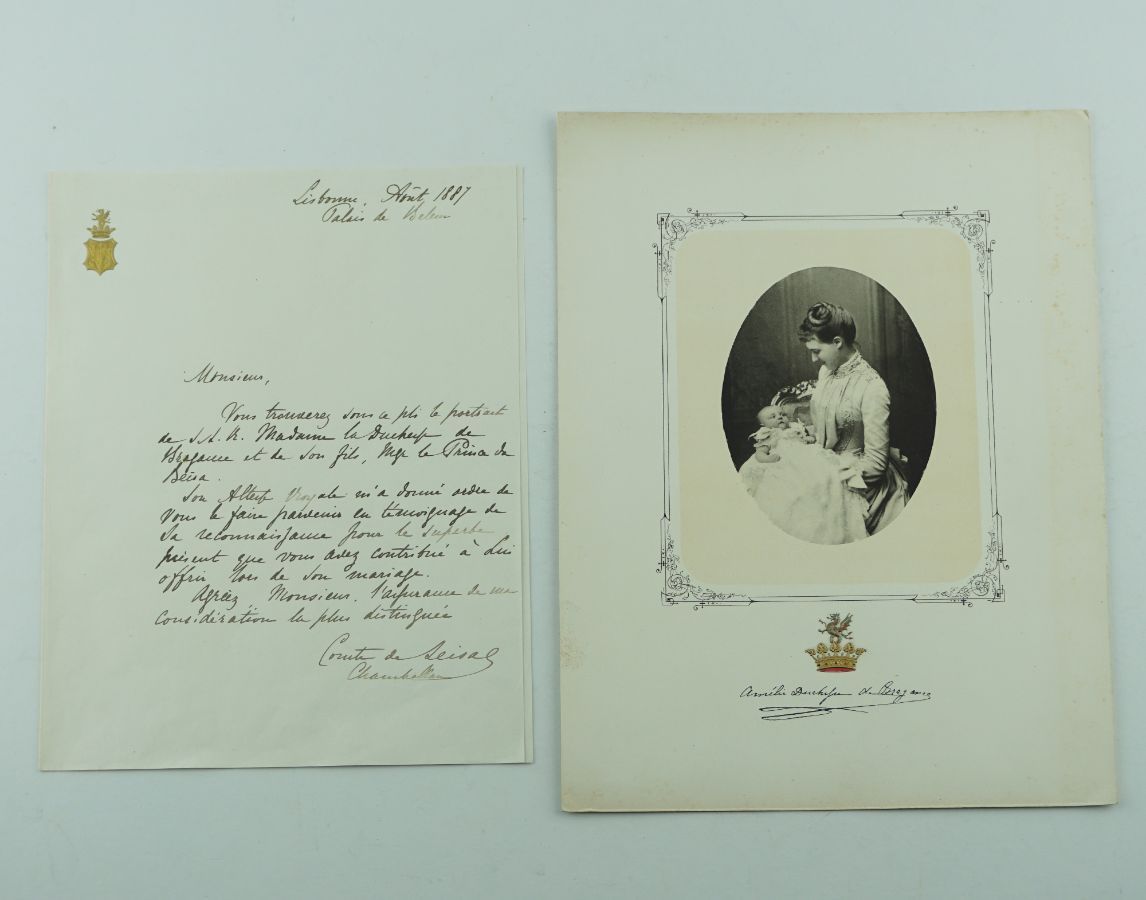 Lisbonne, Août 1887
Palais de Belem
Monsieur,
Vous trouverez sous ce pli le portrait
de S.A.R. Madame la Duchesse de
Bragance et de son fils, Mgr le Prince da
Beira.
Son Altesse Royale m'a donné ordre de
vous le faire parvenir en témoignage de
sa reconnaissance pour le superbe
présent que vous avez contribué à Lui
offrir lors de son mariage.
Agréez Monsieur, l'assurance de ma
considération la plus distinguée
Comte de Seisal
Chambellan
Amélie Duchesse de Bragance